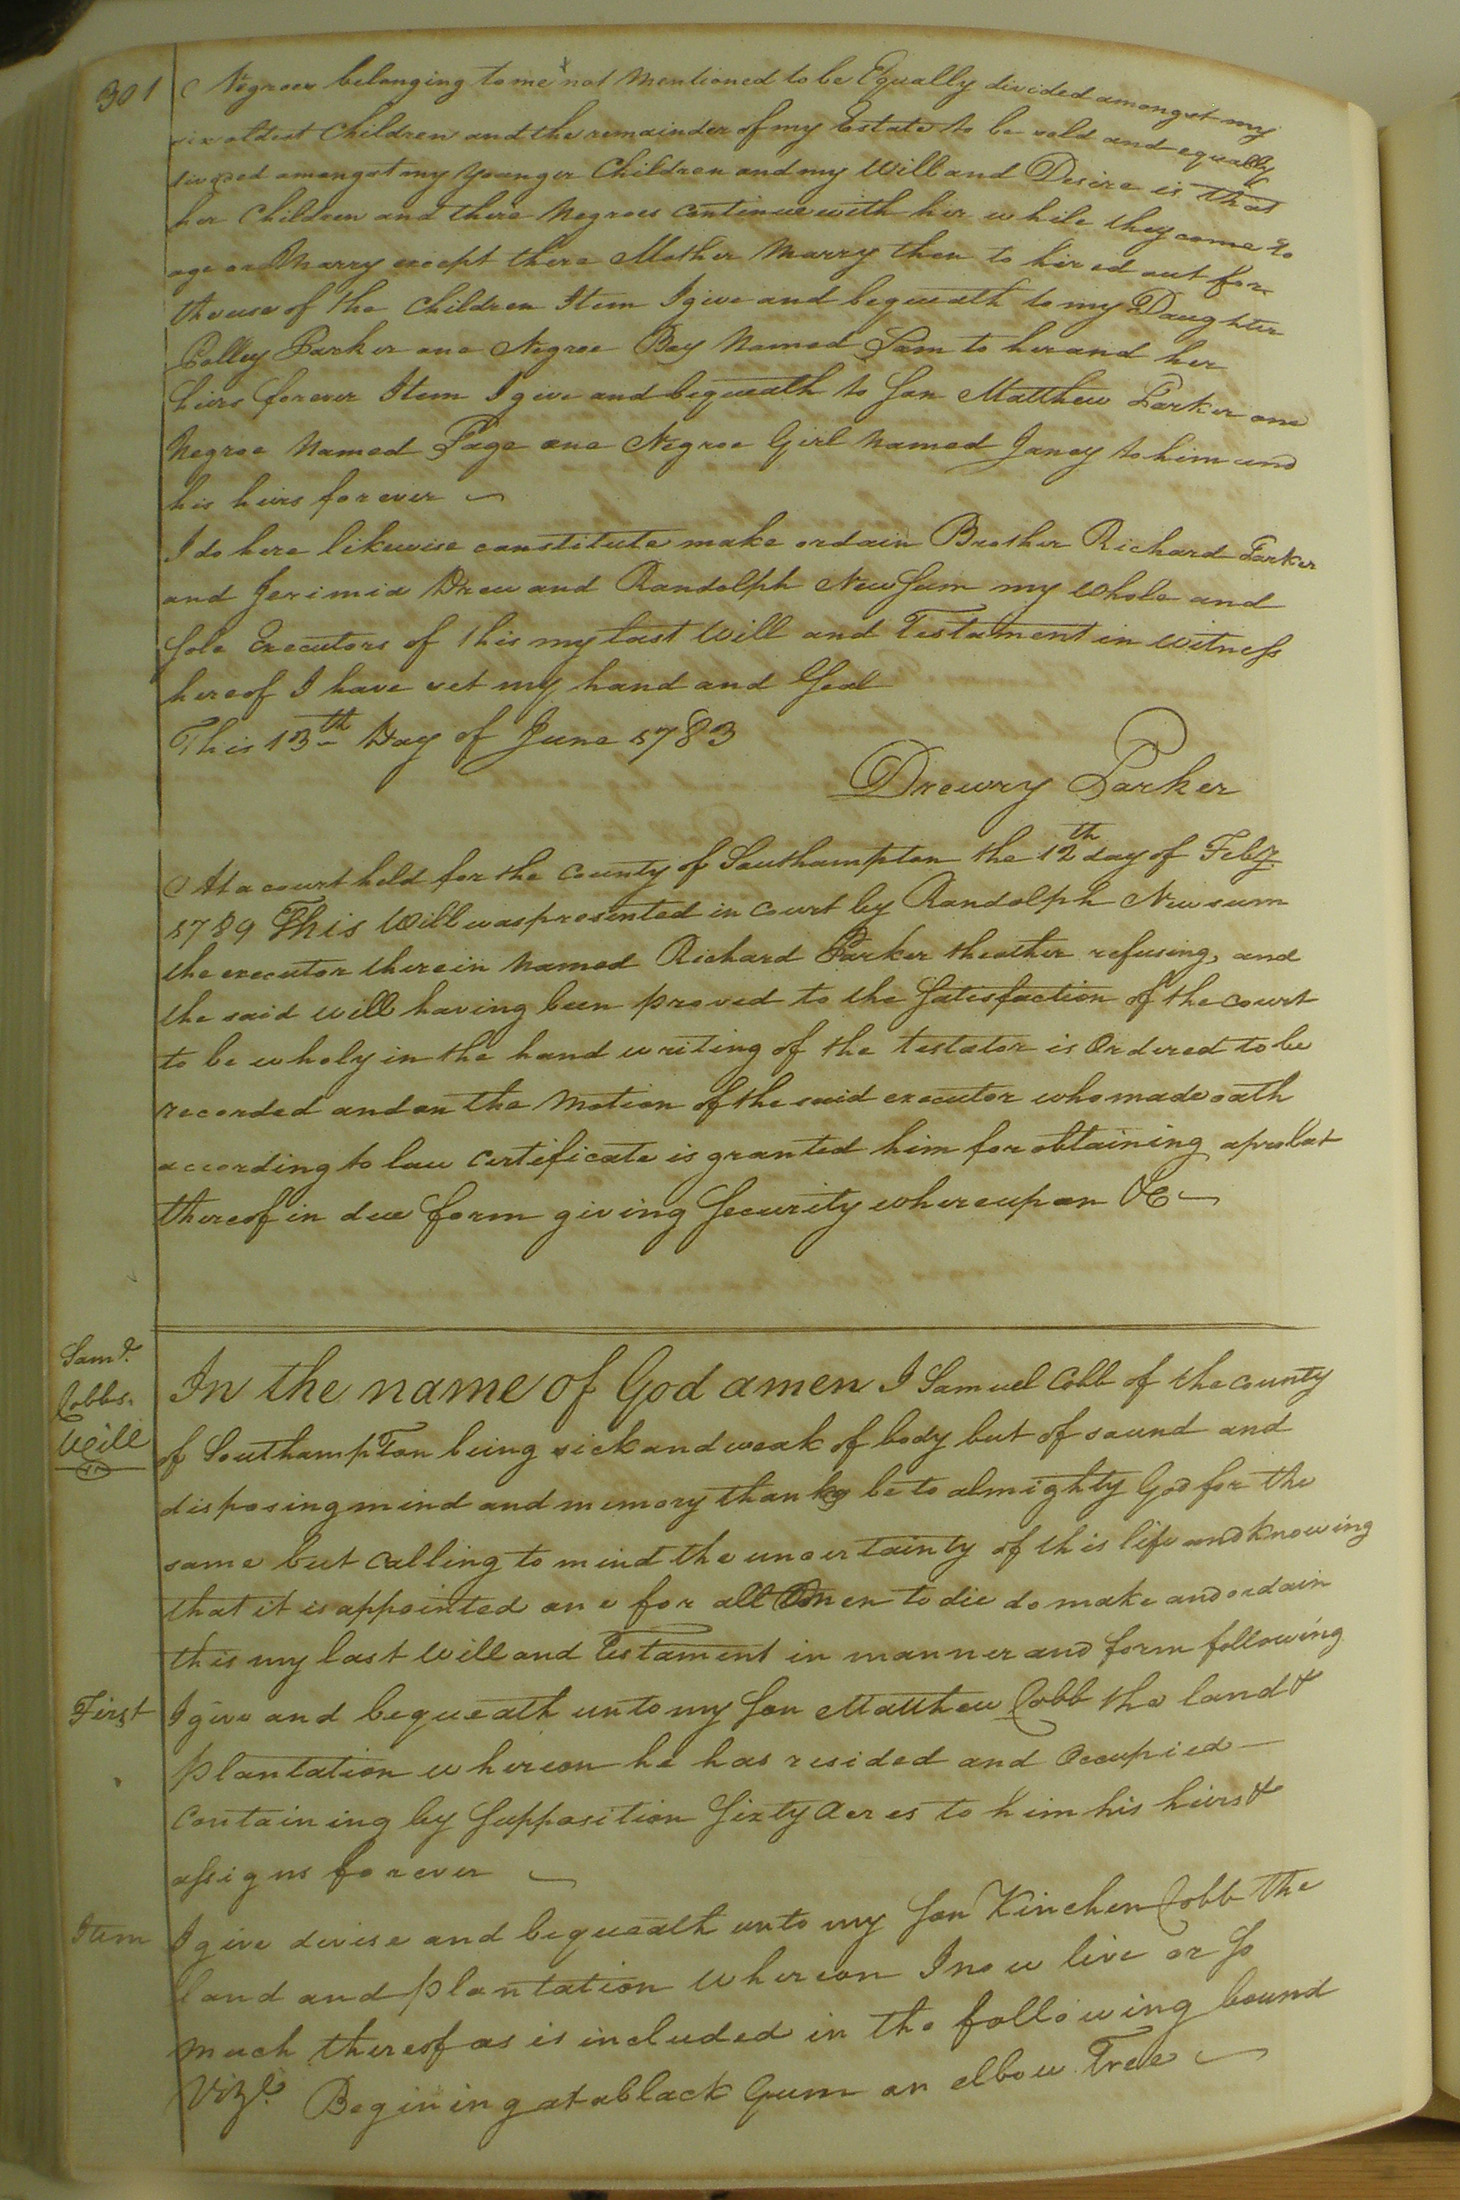 301
Negroes belonging to me not Mentioned to be Equally divided amongst my
six oldest Children and the remainder of my Estate to be sold and equally
divided amongst my younger Children and my Will and Desire is that
her Children and there Negroes continue with her while they come to
age or Marry except there Mother Marry then to hired out for
the use of the Children Item I give and bequeath to my Daughter
Polley Parker one Negroe Boy Named Sam to her and her
heirs forever Item I give and bequeath to Son Matthew Parker one
Negroe Named Page one Negroe Girl Named Janey to him and
his heirs forever
I do here likewise constitute make ordain Brother Richard Parker
and Jerimia Drew and Randolph NewSum my Whole and
Sole Executors of this my last Will and Testament in witness
hereof I have set my hand and Seal
This 13th Day of June 1783
Drewry Parker
At a court held for the County of Southampton the 12th day of Feby
1789 This Will was presented in Court by Randolph Newsum
the executor therein Named Richard Parker the other refusing, and
the said will having been proved to the Satisfaction of the court
to be wholy in the hand writing of the testator is Ordered to be
recorded and on the Motion of the said executor who made oath
according to law Certificate is granted him for obtaining a probat
thereof in due form giving Security whereupon &c
Saml.
Cobbs.
Will
In the name of God amen I Samuel Cobb of the county
of Southampton being sick and weak of body but of sound and
disposing mind and memory thanks be to almighty God for the
same but Calling to mind the uncertainty of this life and knowing
that it is appointed one for all Men to die do make and ordain
this my last Will and Testament in manner and form following
First I give and bequeath unto my Son Matthew Cobb the land &
plantation whereon he has resided and Occupied
Containing by Supposition Sixty Acres to him his heirs &
assigns forever
Item I give devise and bequeath unto my Son Kinchen Cobb the
land and plantation Whereon I now live or So
Much thereof as is included in the following bound
Vizt. Begining at a black Gum an elbow Tree